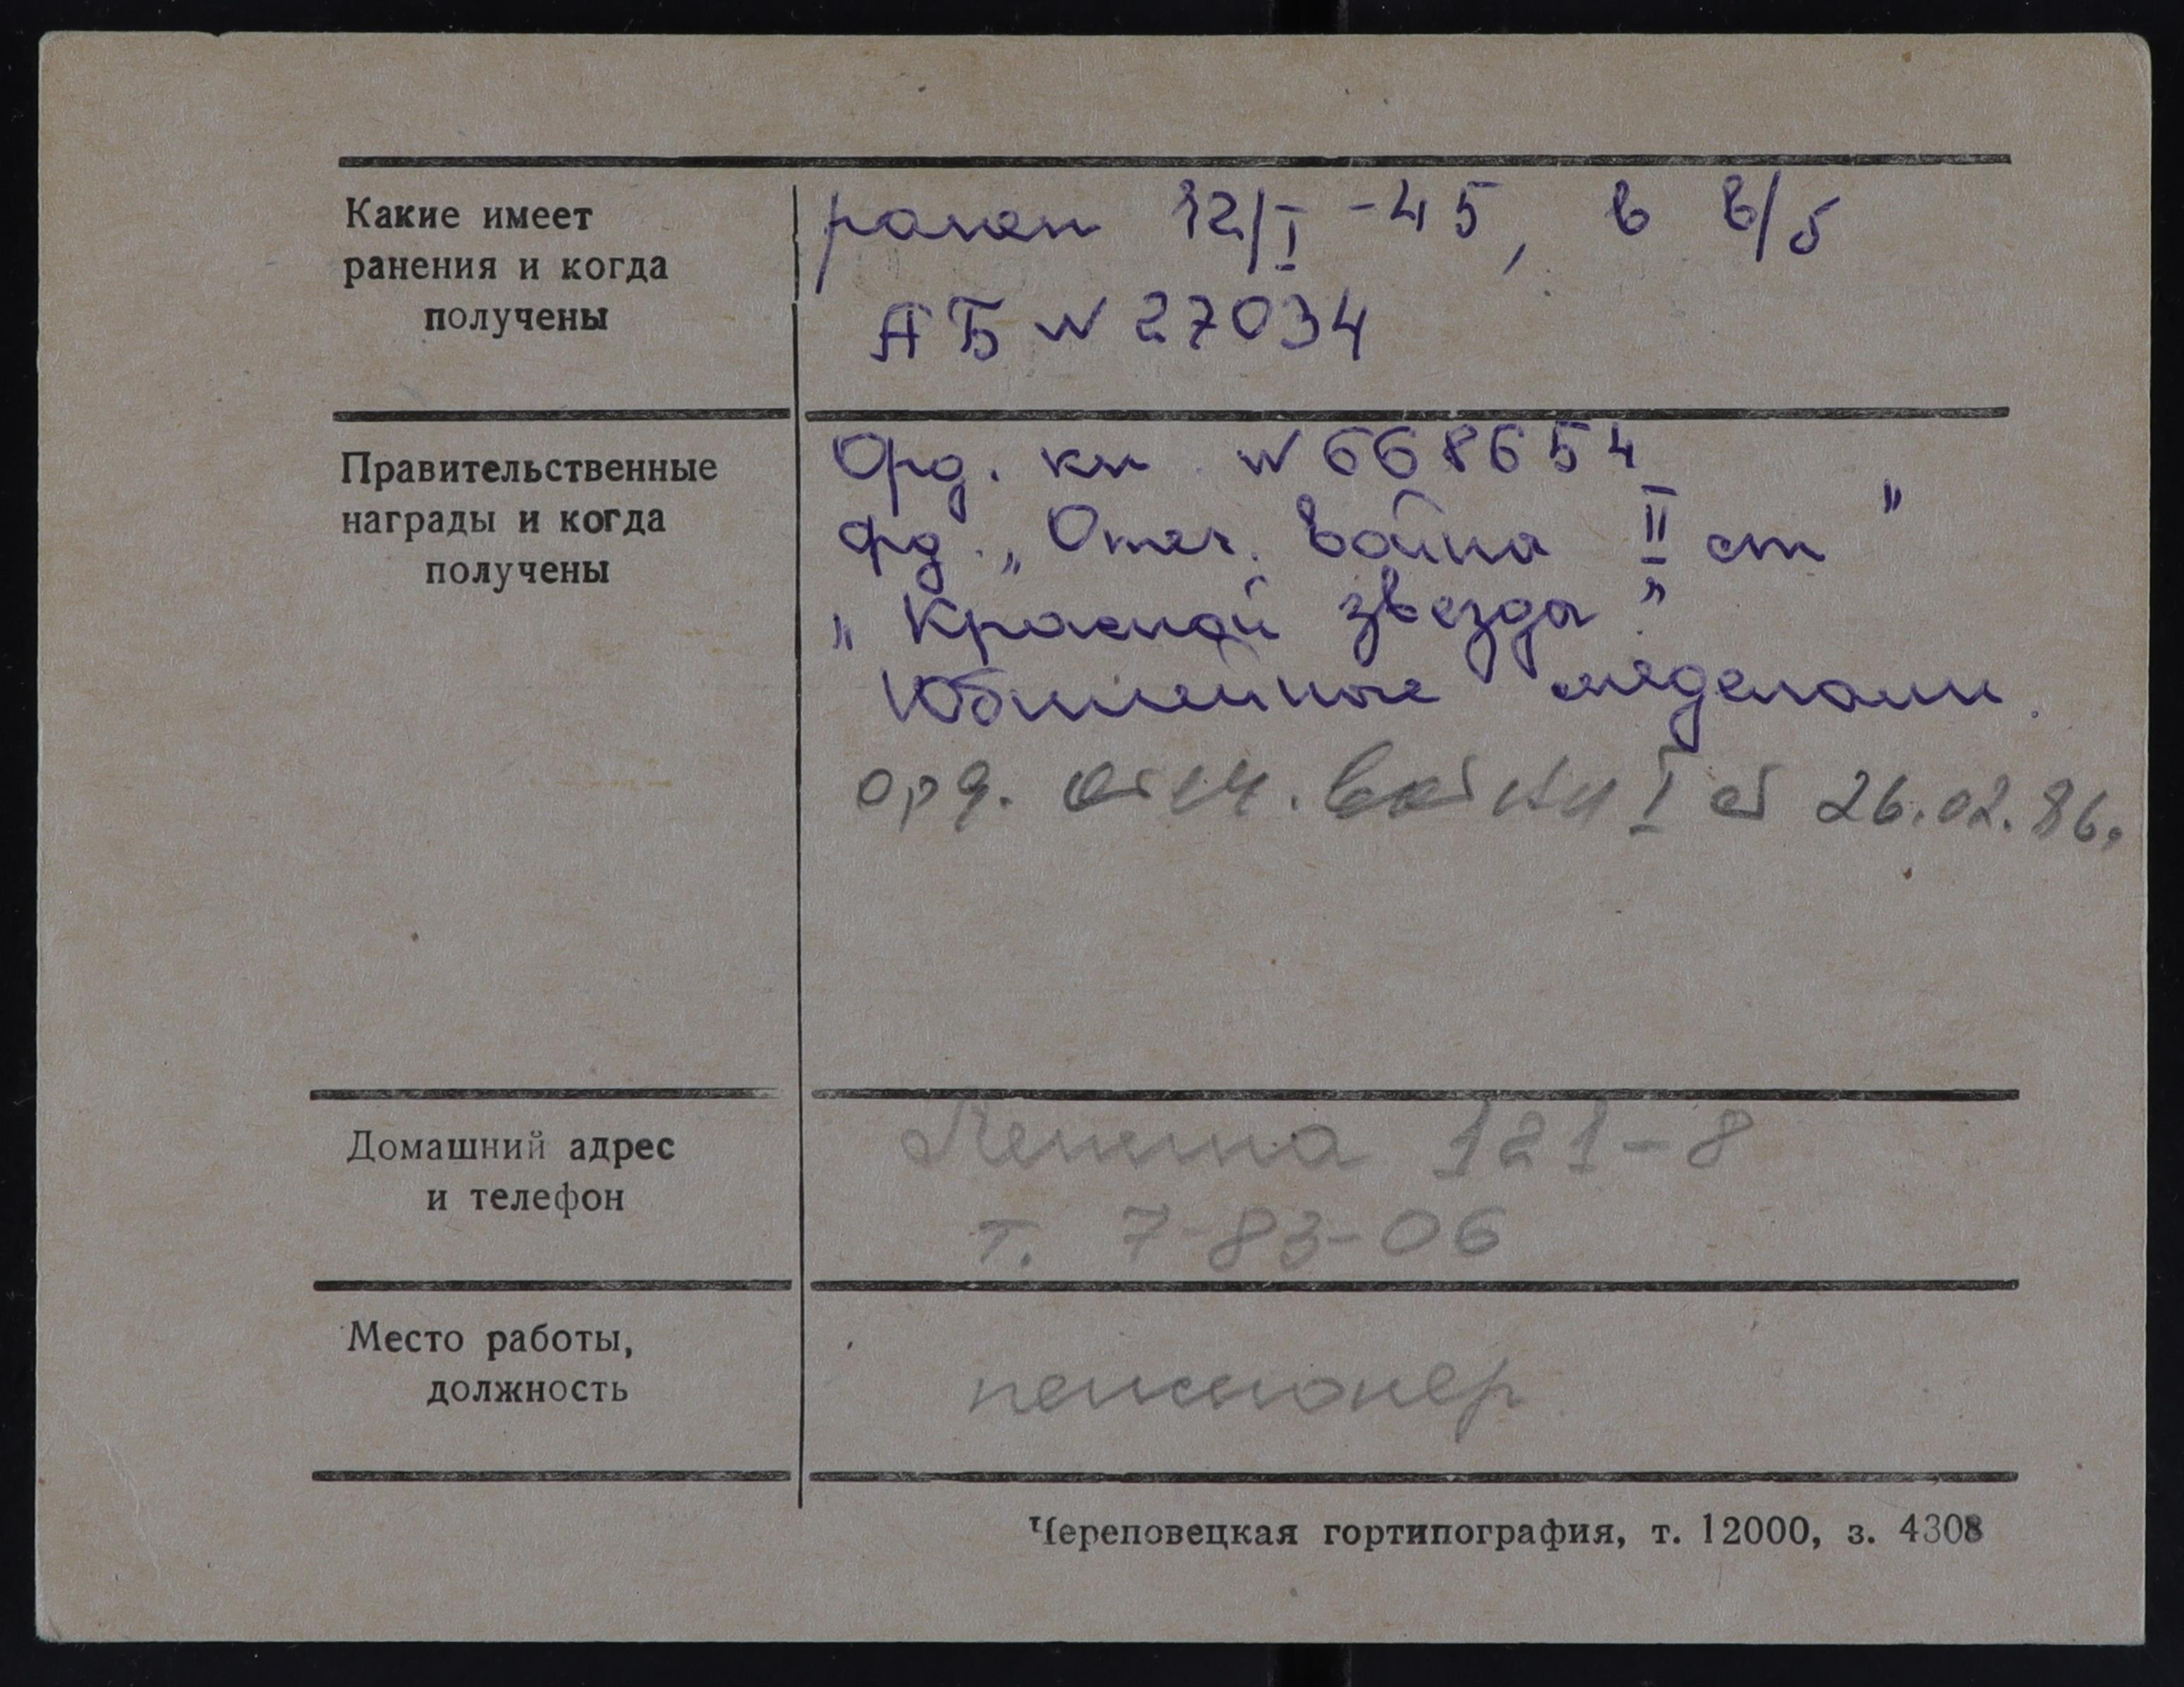 Какие имеет
ранения и когда
получены
ранен 12/I -45, в в/б
АБ N 27034
Правительственные
награды и когда
получены
Орд. кн. N 668654
Орд. „Отеч. война II ст"
„Красной звезды"
Юбилейные медалями.
орд. отеч. войны I ст 26.02.86.
Домашний адрес
и телефон
Ленина 121-8
т. 7-83-06
Место работы,
должность
пенсионер
Череповецкая гортипография, т. 12000, з. 4308